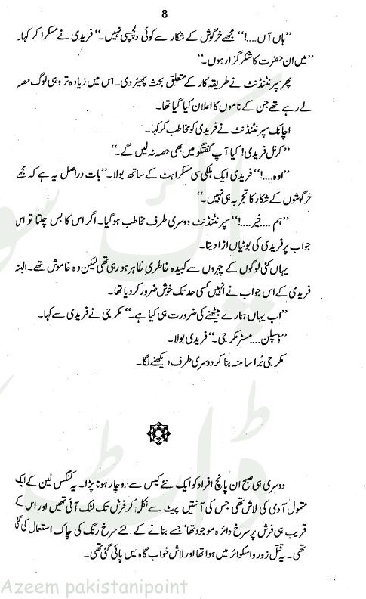 8
"ہاں آں....!" مجھے خرگوش کے شکار سے کوئی دلچسپی نہیں۔" فریدی نے مسکرا کر کہا۔
"میں ان حضرت کا شکر گزار ہوں۔"
پھر سپرنٹنڈنٹ نے طریقہ کار کے متعلق بحث چھیڑ دی۔ اس میں زیادہ تر وہی لوگ حصہ
لے رہے تھے جن کے ناموں کا اعلان کیا گیا تھا۔
اچانک سپرنٹنڈنٹ نے فریدی کو مخاطب کر کے کہا۔
"کرنل فریدی! کیا آپ گفتگو میں بھی حصہ نہ لیں گے۔"
"اوہ....!" فریدی ایک ہلکی سی مسکراہٹ کے ساتھ بولا۔ "بات دراصل یہ ہے کہ مجھے
خرگوشوں کے شکار کا تجربہ ہی نہیں۔"
"ہم.... خیر....!" سپرنٹنڈنٹ دوسری طرف مخاطب ہوگیا۔ اگر اس کا بس چلتا تو اس
جواب پر فریدی کی بوٹیاں اڑا دیتا۔
یہاں کئی لوگوں کے چہروں سے کبیدہ خاطری ظاہر ہو رہی تھی لیکن وہ خاموش تھے۔ البتہ
فریدی کے اس جواب نے انہیں کسی حد تک خوش ضرور کردیا تھا۔
"اب یہاں ہمارے بیٹھنے کی ضرورت ہی کیا ہے۔" مکرجی نے فریدی سے کہا۔
"ڈسپلن.... مسٹر مکرجی۔" فریدی بولا۔
مکرجی بُرا سا منہ بنا کر دوسری طرف دیکھنے لگا۔
دوسری ہی صبح ان پانچ افراد کو ایک نئے کیس سے دوچار ہونا پڑا۔ یہ کنگس لین کے ایک
متمول آدمی کی لاش تھی جس کی آنتیں پیٹ سے نکل کر فرش تک لٹک آئی تھیں اور اس کے
قریب ہی فرش پر سرخ دائرہ موجود تھا جسے بنانے کے لئے سرخ رنگ کی چاک استعمال کی گئی
تھی۔ یہ قتل زورو اسکوائر میں ہوا تھا اور لاش خواب گاہ میں پائی گئی تھی۔
Azeem pakistanipoint